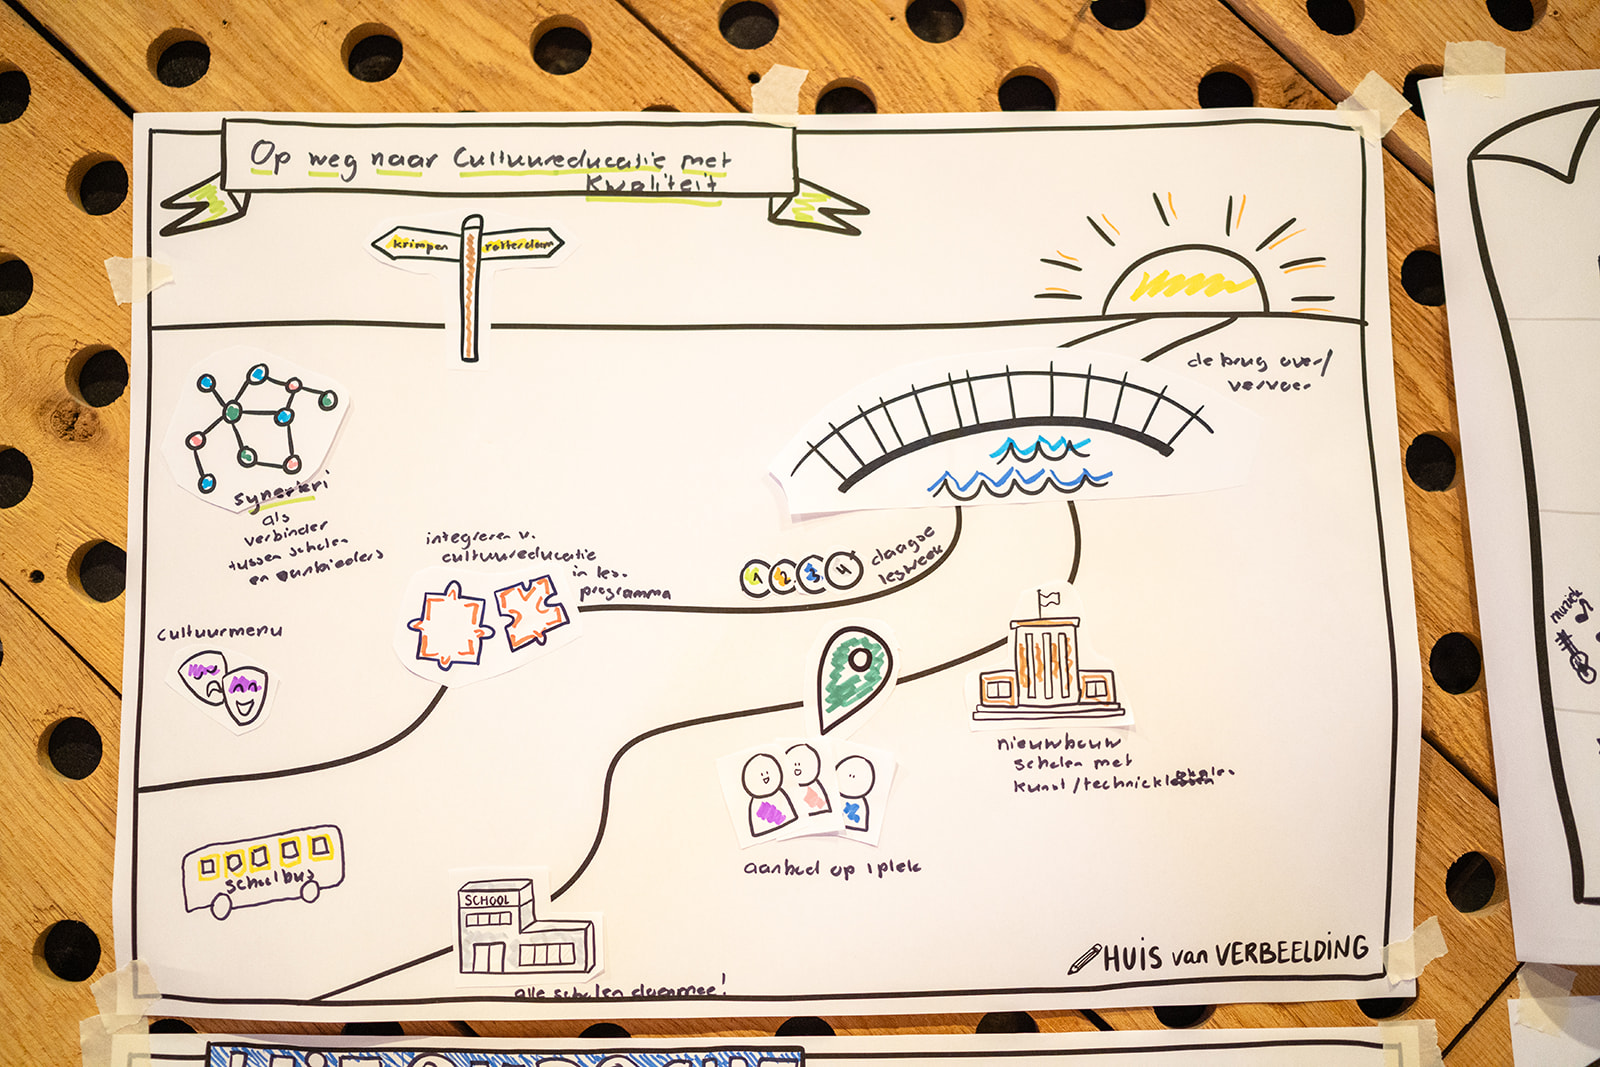 Op weg naar Cultuureducatie met
Kwaliteit
krimpen
rotterdam
de brug over/
vervoer
synerieri
als
verbinder
tussen scholen
en aanbieders
integreren v.
cultuureducatie
in les-
programma
1 2 3 4
daagse
lesweek
cultuurmenu
muziek
nieuwbouw
scholen met
kunst/technieklokalen
aanbod op 1 plek
schoolbus
SCHOOL
alle scholen doen mee!
HUIS van VERBEELDING